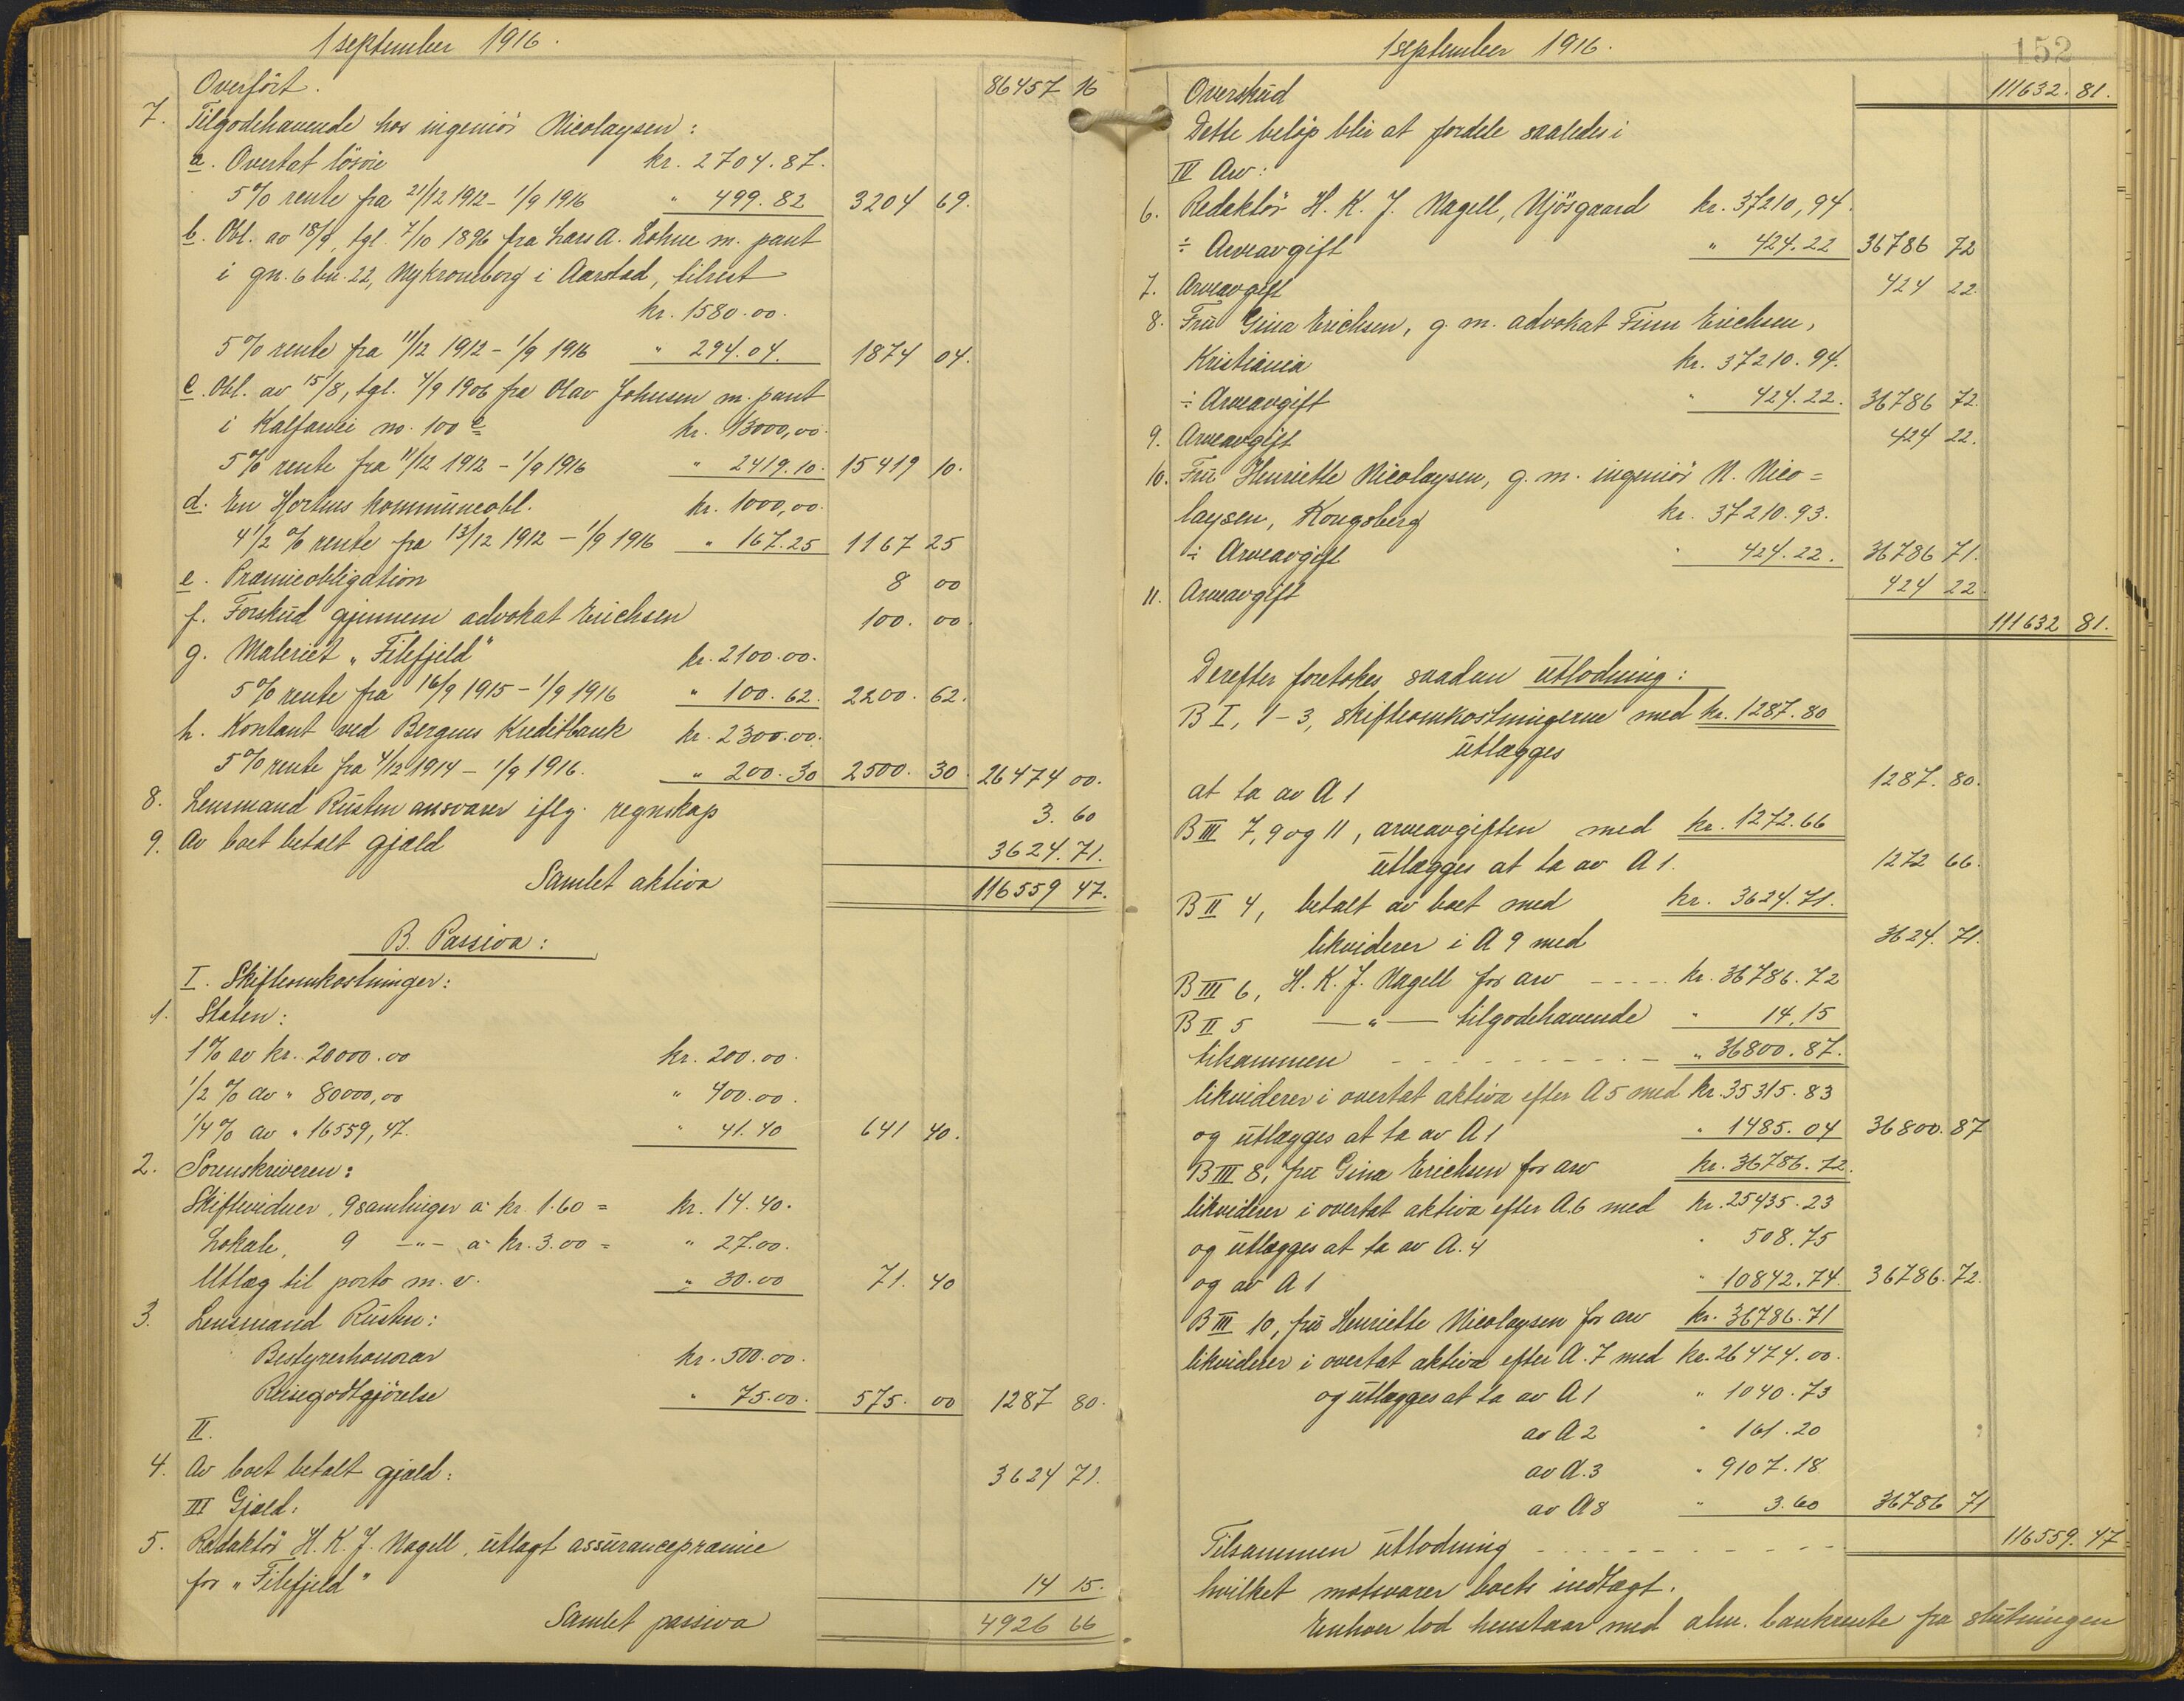 1 september 1916.
Overført. 86457 16
7. Tilgodehavende hos ingeniör Nicolaysen:
a. Overtat lösöre kr. 2704.87.
5% rente fra 21/12 1912 - 1/9 1916 " 499.82 3204 69.
b. Obl. av 18/9, tgl. 7/10 1896 fra Lars A. Lohne m. pant
i gn. 6 bn. 22, Nykroneborg i Aarstad, tilrest
kr. 1580.00.
5% rente fra 11/12 1912 - 1/9 1916 " 294.04. 1874 04.
c. Obl. av 15/8, tgl. 4/9 1906 fra Olav Johnsen m. pant
i Kalfarvei no. 100 c kr. 13000,00.
5% rente fra 11/12 1912 - 1/9 1916 " 2419.10. 15419 10.
d. En Hortens kommuneobl. kr. 1000,00.
4 1/2 % rente fra 13/12 1912 - 1/9 1916 " 167.25 1167 25
e. Præmieobligation 8 00
f. Forskud gjennem advokat Erichsen 100. 00.
g. Maleriet „Filefjeld" kr. 2100.00.
5% rente fra 16/9 1915 - 1/9 1916 " 100.62. 2200. 62.
h. Kontant ved Bergens Kreditbank kr. 2300.00.
5% rente fra 4/12 1914 - 1/9 1916. " 200.30 2500. 30. 26474 00.
8. Lensmand Rusten ansvarer iflg. regnskap 3. 60
9. Av boet betalt gjæld 3624.71.
Samlet aktiva 116559 47.
B. Passiva:
I. Skifteomkostninger:
1. Staten:
1% av kr. 20000.00 kr. 200.00.
1/2 % av " 80000,00 " 400.00.
1/4 % av " 16559,47. " 41.40 641 40.
2. Sorenskriveren:
Skiftevidner, 9 samlinger a kr. 1.60 = kr. 14.40.
Lokale, 9 -"- a kr. 3.00 = " 27.00.
Utlæg til porto m. v. " 30.00 71. 40
3. Lensmand Rusten:
Bestyrerhonorar kr. 500.00.
Reisegodtgjörelse " 75.00. 575. 00 1287 80.
II.
4. Av boet betalt gjæld: 3624 71.
III Gjæld:
5. Redaktör H. K. J. Nagell, utlagt assurancepræmie
for „Filefjeld" 14 15.
Samlet passiva 4926 66
1 september 1916. 152
Overskud 111632. 81.
Dette beløp blir at fordele saaledes i
IV Arv:
6. Redaktör H. K. J. Nagell, Mjösgaard kr. 37210,94.
÷ Arveavgift " 424.22 36786 72
7. Arveavgift 424 22.
8. Fru Gina Erichsen, g. m. advokat Finn Erichsen,
Kristiania kr. 37210.94.
÷ Arveavgift " 424.22. 36786 72.
9. Arveavgift 424 22.
10. Fru Henriette Nicolaysen, g. m. ingeniör N. Nico=
laysen, Kongsberg kr. 37210.93.
÷ Arveavgift " 424.22. 36786 71.
11. Arveavgift 424 22.
111632 81.
Derefter foretokes saadan utlodning:
B I, 1-3, skifteomkostningerne med kr. 1287.80
utlægges
at ta av A 1 1287. 80.
B III 7, 9 og 11, arveavgiften med kr. 1272.66
utlægges at ta av A 1. 1272 66.
B II 4, betalt av boet med kr. 3624.71.
likviderer i A 9 med 3624. 71.
B III 6, H. K. J. Nagell for arv ---- kr. 36786.72
B II 5 —"— tilgodehavende " 14,15
tilsammen ---------- " 36800.87.
likviderer i overtat aktiva efter A 5 med kr. 35315.83
og utlægges at ta av A 1 " 1485.04 36800.87
B III 8, fru Gina Erichsen for arv kr. 36786.72.
likviderer i overtat aktiva efter A.6 med kr. 25435.23
og utlægges at ta av A.4 " 508.75
og av A 1 " 10842.74. 36786.72.
B III 10, fru Henriette Nicolaysen for arv kr. 36786.71
likviderer i overtat aktiva efter A.7 med kr. 26474.00.
og utlægges at ta av A 1 " 1040.73
av A 2 " 161.20
av A.3 " 9107.18
av A 8 " 3.60 36786 71
Tilsammen utlodning ---------- 116559.47
hvilket motsvarer boets indtægt.
Enhver lod henstaar med alm. bankrente fra slutningen